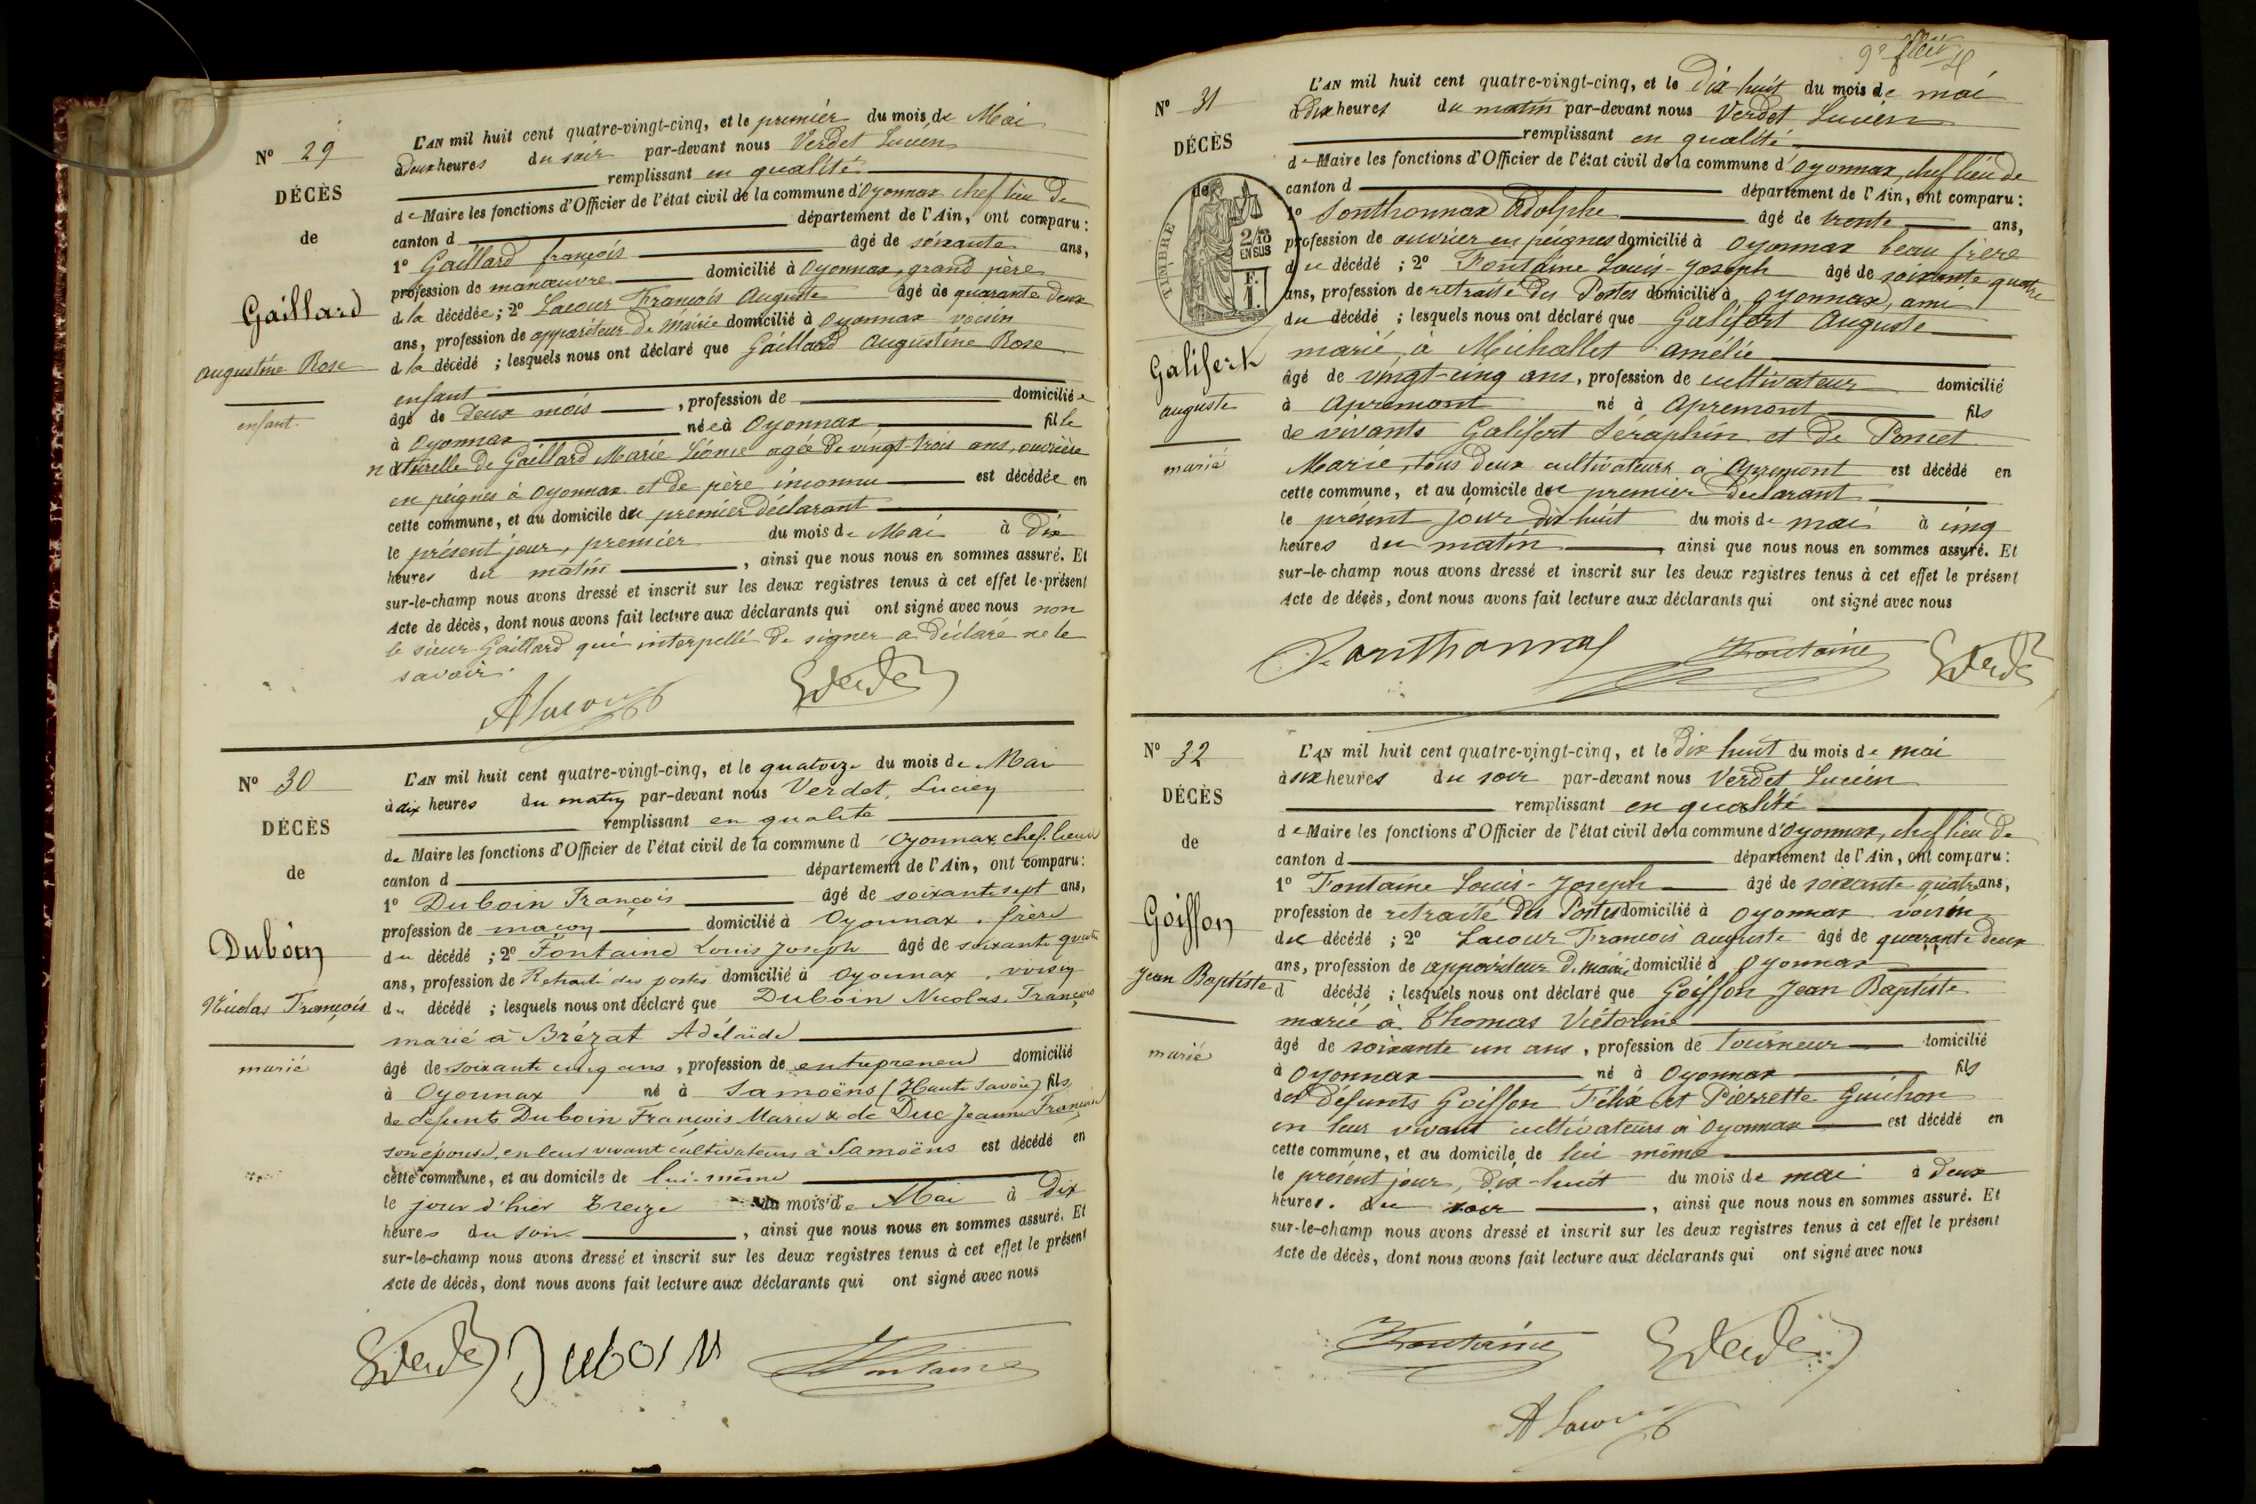 N° 29
DÉCÈS
de
Gaillard
augustine Rose
enfant
L'AN mil huit cent quatre-vingt-cinq, et le premier du mois de Mai
à deux heures du soir par-devant nous Verdet Lucien
remplissant en qualité
de Maire les fonctions d'Officier de l'état civil de la commune d'Oyonnax chef lieu de
canton d département de l'Ain, ont comparu :
1° Gaillard françois âgé de soixante ans,
profession de manœuvre domicilié à Oyonnax, grand père
de la décédée ; 2° Lacour François Auguste âgé de quarante deux
ans, profession de appariteur de Mairie domicilié à Oyonnax voisin
de la décédé ; lesquels nous ont déclaré que Gaillard Augustine Rose
enfant
âgé de deux mois , profession de domiciliée
à Oyonnax née à Oyonnax fille
naturelle de Gaillard Marie Léonie agée de vingt-trois ans, ouvrière
en peignes à Oyonnax et de père inconnu est décédée en
cette commune, et au domicile du premier déclarant
le présent jour, premier du mois de Mai à dix
heures du matin , ainsi que nous nous en sommes assuré. Et
sur-le-champ nous avons dressé et inscrit sur les deux registres tenus à cet effet le présent
Acte de décès, dont nous avons fait lecture aux déclarants qui ont signé avec nous non
le sieur Gaillard qui interpellé de signer a déclaré ne le
savoir.
A Lacour Verdet
N° 30
DÉCÈS
de
Duboin
Nicolas François
marié
L'AN mil huit cent quatre-vingt-cinq, et le quatorze du mois de Mai
à dix heures du matin par-devant nous Verdet, Lucien
remplissant en qualité
de Maire les fonctions d'Officier de l'état civil de la commune d'Oyonnax, chef-lieu de
canton d département de l'Ain, ont comparu :
1° Duboin François âgé de soixante sept ans,
profession de maçon domicilié à Oyonnax, frère
du décédé ; 2° Fontaine Louis Joseph âgé de soixante quatre
ans, profession de Retraité des postes domicilié à Oyonnax, voisin
du décédé ; lesquels nous ont déclaré que Duboin Nicolas François
marié à Brézat Adélaïde
âgé de soixante cinq ans , profession de entrepreneur domicilié
à Oyonnax né à Samoëns (Haute Savoie) fils
de défunts Duboin François Marie & de Duc Jeanne Françoise
son épouse, en leur vivant cultivateurs à Samoëns est décédé en
cette commune, et au domicile de lui-même
le jour d'hier treize du mois de Mai à Dix
heures du soir , ainsi que nous nous en sommes assuré. Et
sur-le-champ nous avons dressé et inscrit sur les deux registres tenus à cet effet le présent
Acte de décès, dont nous avons fait lecture aux déclarants qui ont signé avec nous
Verdet Duboin Fontaine
N° 31
DÉCÈS
de
TIMBRE
2/10
EN SUS
Galifert
auguste
marié
L'AN mil huit cent quatre-vingt-cinq, et le dix huit du mois de mai
à dix heures du matin par-devant nous Verdet Lucien
remplissant en qualité
de Maire les fonctions d'Officier de l'état civil de la commune d'Oyonnax, chef lieu de
canton d département de l'Ain, ont comparu :
1° Sonthonnax Adolphe âgé de trente ans,
profession de ouvrier en peignes domicilié à Oyonnax beau frère
du décédé ; 2° Fontaine Louis-Joseph âgé de soixante quatre
ans, profession de retraité des Postes domicilié à Oyonnax, ami
du décédé ; lesquels nous ont déclaré que Galifert Auguste
marié à Michallet Amélie
âgé de vingt-cinq ans, profession de cultivateur domicilié
à Apremont né à Apremont fils
de vivants Galifert Séraphin et de Poncet
Marie, tous deux cultivateurs à Apremont est décédé en
cette commune, et au domicile du premier déclarant
le présent jour dix huit du mois de mai à cinq
heures du matin , ainsi que nous nous en sommes assuré. Et
sur-le-champ nous avons dressé et inscrit sur les deux registres tenus à cet effet le présent
Acte de décès, dont nous avons fait lecture aux déclarants qui ont signé avec nous
Sonthonnax Fontaine Verdet
N° 32
DÉCÈS
de
Goiffon
Jean Baptiste
marié
L'AN mil huit cent quatre-vingt-cinq, et le dix huit du mois de mai
à six heures du soir par-devant nous Verdet Lucien
remplissant en qualité
de Maire les fonctions d'Officier de l'état civil de la commune d'Oyonnax, chef lieu de
canton d département de l'Ain, ont comparu :
1° Fontaine Louis-Joseph âgé de soixante quatre ans,
profession de retraité des Postes domicilié à Oyonnax voisin
du décédé ; 2° Lacour François Auguste âgé de quarante deux
ans, profession de appariteur de mairie domicilié à Oyonnax
d décédé ; lesquels nous ont déclaré que Goiffon Jean Baptiste
marié à Thomas Victorine
âgé de soixante un ans, profession de Tourneur domicilié
à Oyonnax né à Oyonnax fils
des défunts Goiffon Félix et Pierrette Guichon
en leur vivant cultivateurs à Oyonnax est décédé en
cette commune, et au domicile de lui-même
le présent jour, dix-huit du mois de mai à deux
heures. du soir , ainsi que nous nous en sommes assuré. Et
sur-le-champ nous avons dressé et inscrit sur les deux registres tenus à cet effet le présent
Acte de décès, dont nous avons fait lecture aux déclarants qui ont signé avec nous
Fontaine Verdet
A Lacour